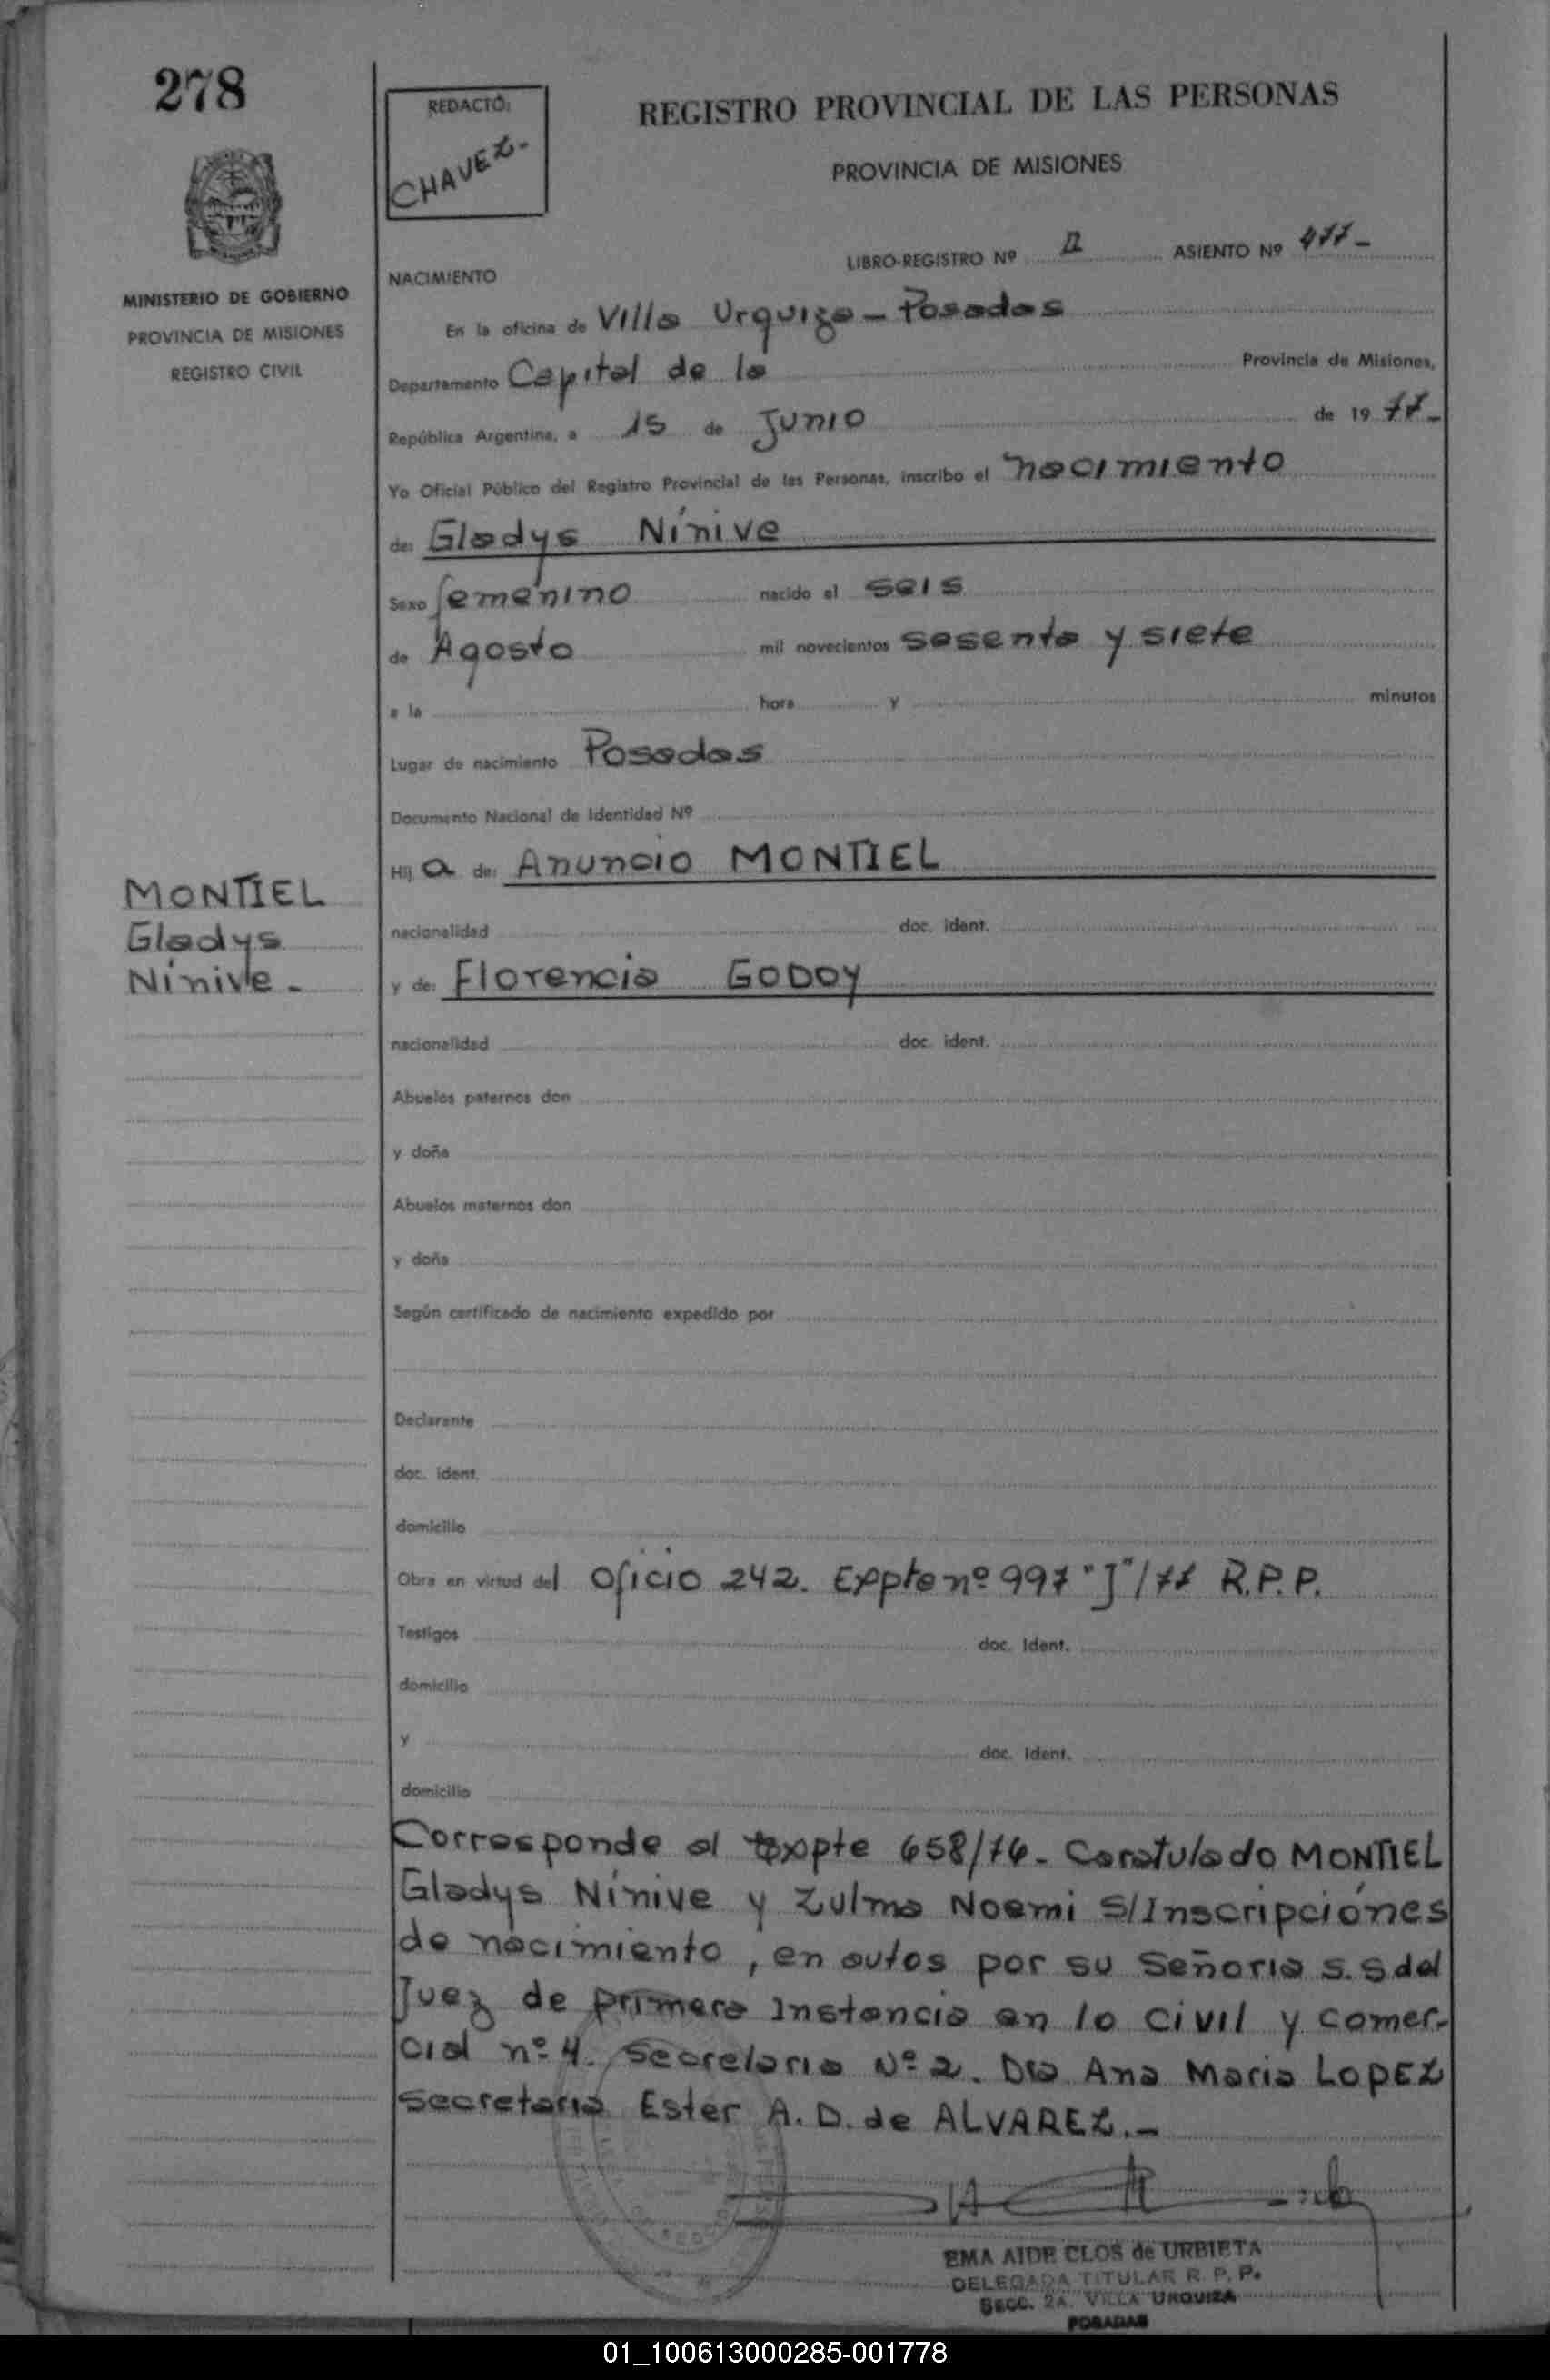 278
REDACTÓ:
CHAVEZ.-
REGISTRO PROVINCIAL DE LAS PERSONAS
PROVINCIA DE MISIONES
MINISTERIO DE GOBIERNO
PROVINCIA DE MISIONES
REGISTRO CIVIL
LIBRO-REGISTRO Nº II ASIENTO Nº 477-
NACIMIENTO
En la oficina de Villa Urquiza - Posadas
Departamento Capital de la Provincia de Misiones,
República Argentina, a 15 de Junio de 1977-
Yo Oficial Público del Registro Provincial de las Personas, inscribo el nacimiento
de: Gladys Nínive
Sexo femenino nacido el seis
de Agosto mil novecientos sesenta y siete
a la hora y minutos
Lugar de nacimiento Posadas
Documento Nacional de Identidad Nº
Hij a de: Anuncio MONTIEL
MONTIEL
Gladys
Nínive.-
nacionalidad doc. ident.
y de: Florencia GODOY
nacionalidad doc. ident.
Abuelos paternos don
y doña
Abuelos maternos don
y doña
Según certificado de nacimiento expedido por
Declarante
doc. ident.
domicilio
Obra en virtud del Oficio 242. Expte nº 997 "J"/77 R.P.P.
Testigos doc. Ident.
domicilio
y doc. Ident.
domicilio
Corresponde al Expte 658/76- Caratulado MONTIEL
Gladys Nínive y Zulma Noemi S/Inscripciónes
de nacimiento, en autos por su Señoria S.S del
Juez de primera Instancia en lo Civil y comer-
cial nº 4. Secretaria Nº 2. Dra Ana Maria LOPEZ
Secretaria Ester A. D. de ALVAREZ.-
EMA AIDE CLOS de URBIETA
DELEGADA TITULAR R. P. P.
SECC. 2A. VILLA URQUIZA
POSADAS
01_100613000285-001778